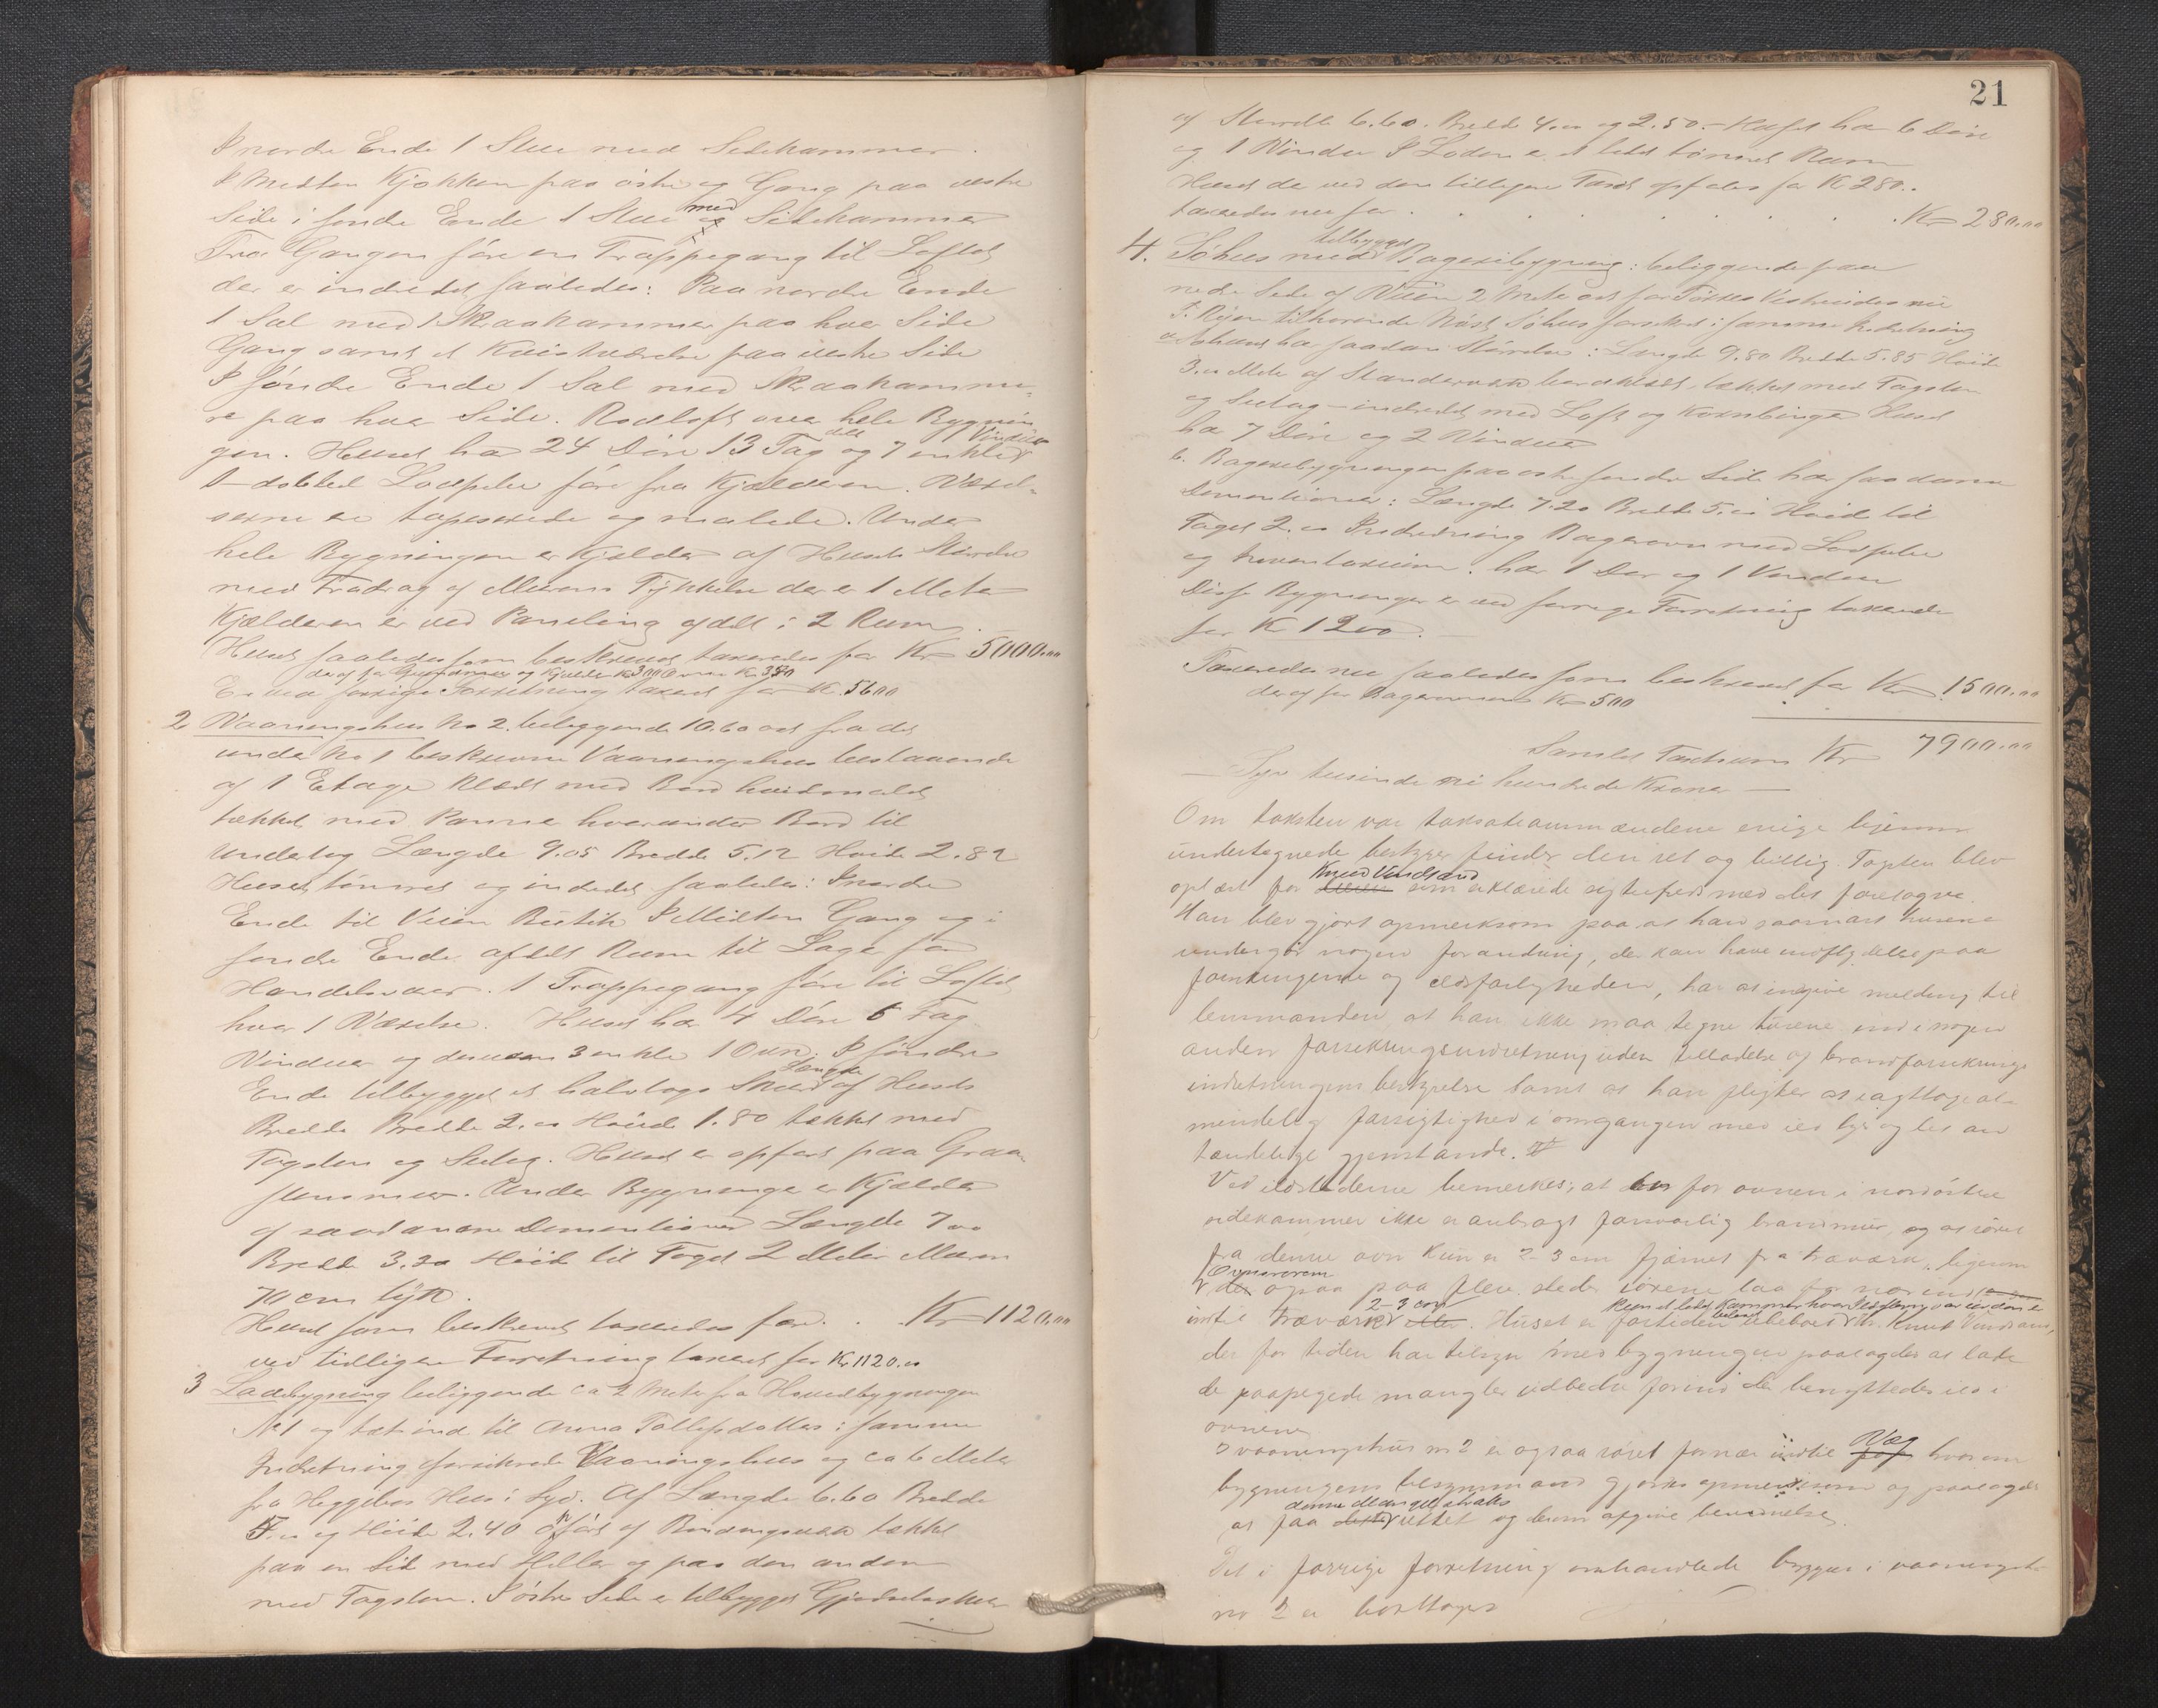 I nordre Ende 1 Stue med Sidekammer.
I Midten Kjøkken paa østre og Gang paa vestre
Side i søndre Ende 1 Stue med Sidekammer
Fra Gangen fører en Trappegang til Loftet
der er indredet saaledes: Paa nordre Ende
1 Sal med 1 Skraakammer paa hver Side
Gang samt et Kvistværelse paa vestre Side
I søndre Ende 1 Sal med Skraakamme-
re paa hver Side. Rodloft over hele Bygnin
gen. Huset har 24 Døre 13 Fag delt og 7 enkle Vinduer
1 dobbel Lodpibe fører fra Kjælderen. Værel-
serne er tapeserede og malede. Under
hele Bygningen er Kjelder af Husets Størrelse
med Fradrag af Murens Tykkelse der er 1 Meter
Kjælderen er ved Paneling afdelt i 2 Rum.
Huset saaledes som beskrevet taxeredes for Kr 5000.00
deraf for Grundmur og Kjelder Kr 300 Ovne Kr 350
Er ved forrige Forretning taxeret for Kr. 5600
2 Vaaningshus No 2. beliggende 10.60 vest fra det
under No 1 beskrevne Vaaningshus bestaaende
af 1 Etage klædt med Bord hvidmalet
tækket med Panne hvorunder Bord til
Undertag Længde 9.05 Bredde 5.12 Høide 2.82
Huset tømret og indredet saaledes: I nordre
Ende til Veien Butik I Midten Gang og i
søndre Ende afdelt Rum til Lager for
Handelsvarer. 1 Trappegang fører til Loftet
hvor 1 Værelse. Huset har 4 Døre 5 Fag
Vinduer og desuden 3 enkle 1 Ovn. I søndre
Ende tilbygget et halvtags Skur Længde af Husets
Bredde Bredde 2.00 Høide 1.80 tækket med
Tagsten og Sutag. Huset er opført paa Graa
stensmur. Under Bygningen er Kjelder
af saadanne Dimentioner Længde 7.00
Bredde 3.30 Høide til Taget 2 Meter Muren
70 cm tyk.
Huset som beskrevet taxeredes for. . . Kr 1120.00
ved tidligere Forretning taxeret for Kr 1120.00
3 Ladebygning beliggende ca 2 Meter fra Hovedbygningen
No 1 og tæt ind til Anna Tollefsdatters i samme
Indretning forsikrede Vaaningshus og ca 6 Meter
fra Heggebøs Hus i Syd. Af Længde 6.60 Bredde
5.00 og Høide 2.40 opført af Bindingsværk tækket
paa en Side med Heller og paa den anden
med Tagsten. I østre Side er tilbygget Gjødselsskur
21
af Størrelse 6.60. Bredde 4.00 og 2.50. – Huset har 6 Døre
og 1 Vindu I Loden er et lidet tømret Rum
Huset der ved den tidligere Taxt opføres for Kr 280.
taxeredes nu for . . . . . . . Kr 280.00
4. Søhus med tilbygget Bageribygning: beliggende paa
nedre Side af Veien 2 Meter
tilhørende Nøst, Søhus forsikret i samme Indretning
a Søhuset har saadan Størrelse: Længde 9.80 Bredde 5.85 Høide
3.00 Meter af Standerværk bordklædt, tækket med Tagsten
og Sutag – indredet med Loft og Kornbinger Huset
har 7 Døre og 2 Vinduer
b. Bageribygningen paa østre søndre Side har saadanne
Dimentioner: Længde 7.20 Bredde 5.00 Høide til
Taget 2.00 Indredning Bagerovn med Lodpibe
og Inventarium. har 1 Dør og 1 Vindu
Disse Bygninger er ved forrige Forretning taxerede
for Kr 1200. –
Taxeredes nu saaledes som beskrevet for Kr 1500.00
deraf for Bagerovnen Kr 500
Samlet Taxtsum Kr 7900.00
– Syv tusinde ni hundrede Kroner –
Om taksten var taksationsmændene enige ligesom
undertegnede bestyrer finder den ret og billig. Taxten blev
oplæst for Knud Vindsand som erklærede sig tilfreds med det foretagne.
Han blev gjort opmerksom paa at han saasnart husene
undergår nogen forandring, der kan have indflydelse paa
forsikringerne og ildsfarligheden, har at indgive melding til
lensmanden at han ikke maa tegne husene ind i nogen
anden forsikringsindretning uden tilladelse af brandforsikrings
indretningens bestyrelse samt at han pligter at iagttage al-
mindelig forsigtighed i omgangen med ild lys og let an
tændelige gjenstande.
Ved ildstederne bemerkes, at for ovnen i nordøstre
sidekammer ikke er anbragt forsvarlig brandmur, og at røret
fra denne ovn kun er 2-3 cm fjærnet fra træværk, ligesom
Ovnsrørene ogsaa paa flere steder laa for nær ind
indtil træværket 2-3 cm. Huset er fortiden ubeboet kun et lidet Kammer
der for tiden har tilsyn med bygningen paalagdes at lade
de paapegede mangler udbedre forind der benyttedes ild i
ovnene.
I vaaningshus nr 2 er ogsaa røret fornær indtil Væg hvorom
bygningens besyrmand gjordes opmerksom og paalagdes
at faa denne Mangel straks rettet og derom afgive bevidnelse.
Det i forrige forretning omhandlede bryggeri i vaaningshus
nr 2 er borttaget